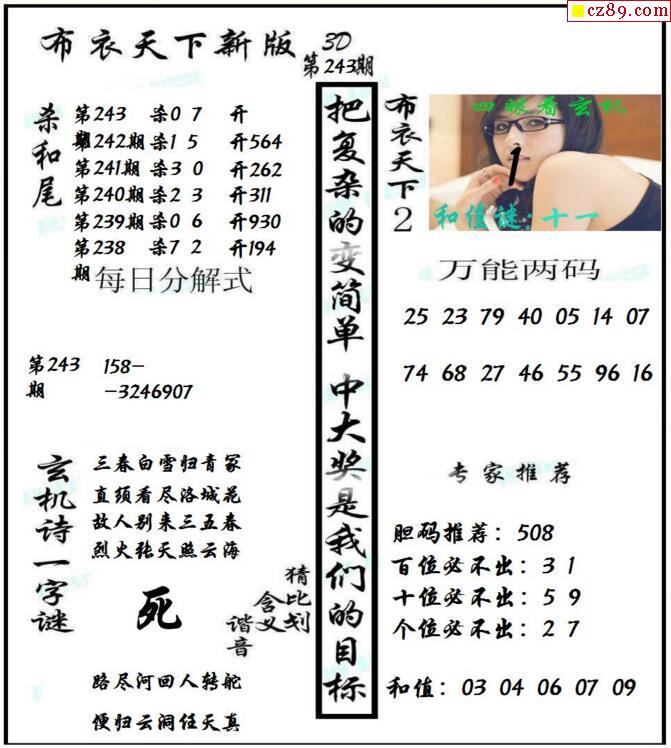 cz89.com
布衣天下新版 3D
第243期
杀和尾
第243期 杀0 7 开
第242期 杀1 5 开564
第241期 杀3 0 开262
第240期 杀2 3 开311
第239期 杀0 6 开930
第238期 杀7 2 开194
每日分解式
第243期 158-
-3246907
玄机诗一字谜
三春白雪归青冢
直须看尽洛城花
故人别来三五春
烈火张天照云海
死
猜比划
含义
谐音
路尽河回人转舵
便归云洞任天真
把复杂的变简单 中大奖是我们的目标
布衣天下2
四眼看玄机
1
和值谜:十一
万能两码
25 23 79 40 05 14 07
74 68 27 46 55 96 16
专家推荐
胆码推荐：508
百位必不出：3 1
十位必不出：5 9
个位必不出：2 7
和值：03 04 06 07 09